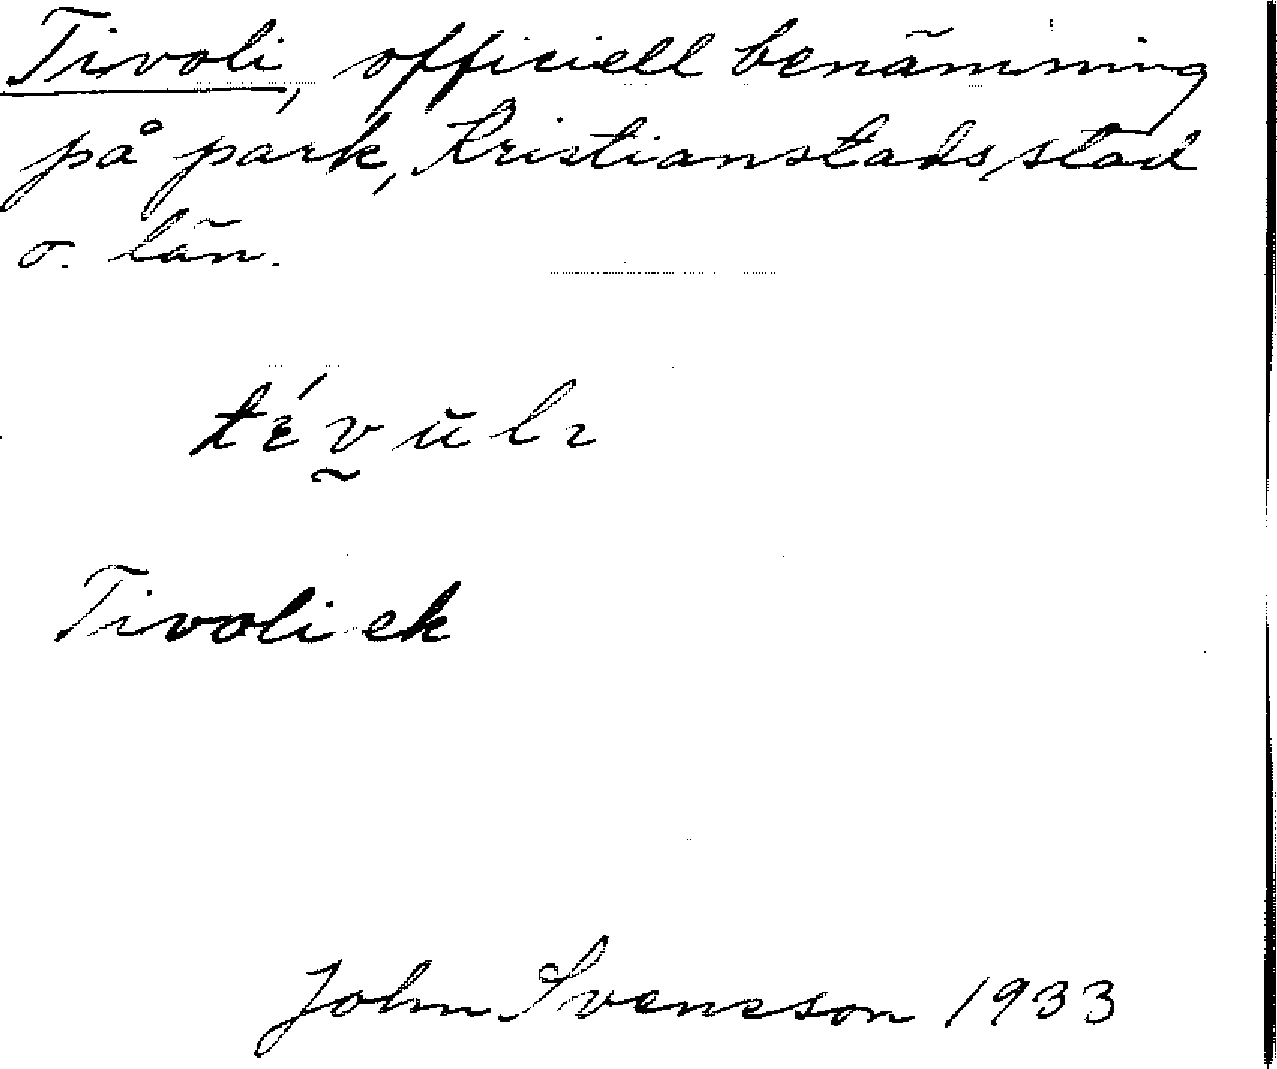 Tivoli, officiell benämning
på park, Kristianstads stad
o. län.
Tivoli ek
John Svensson 1933